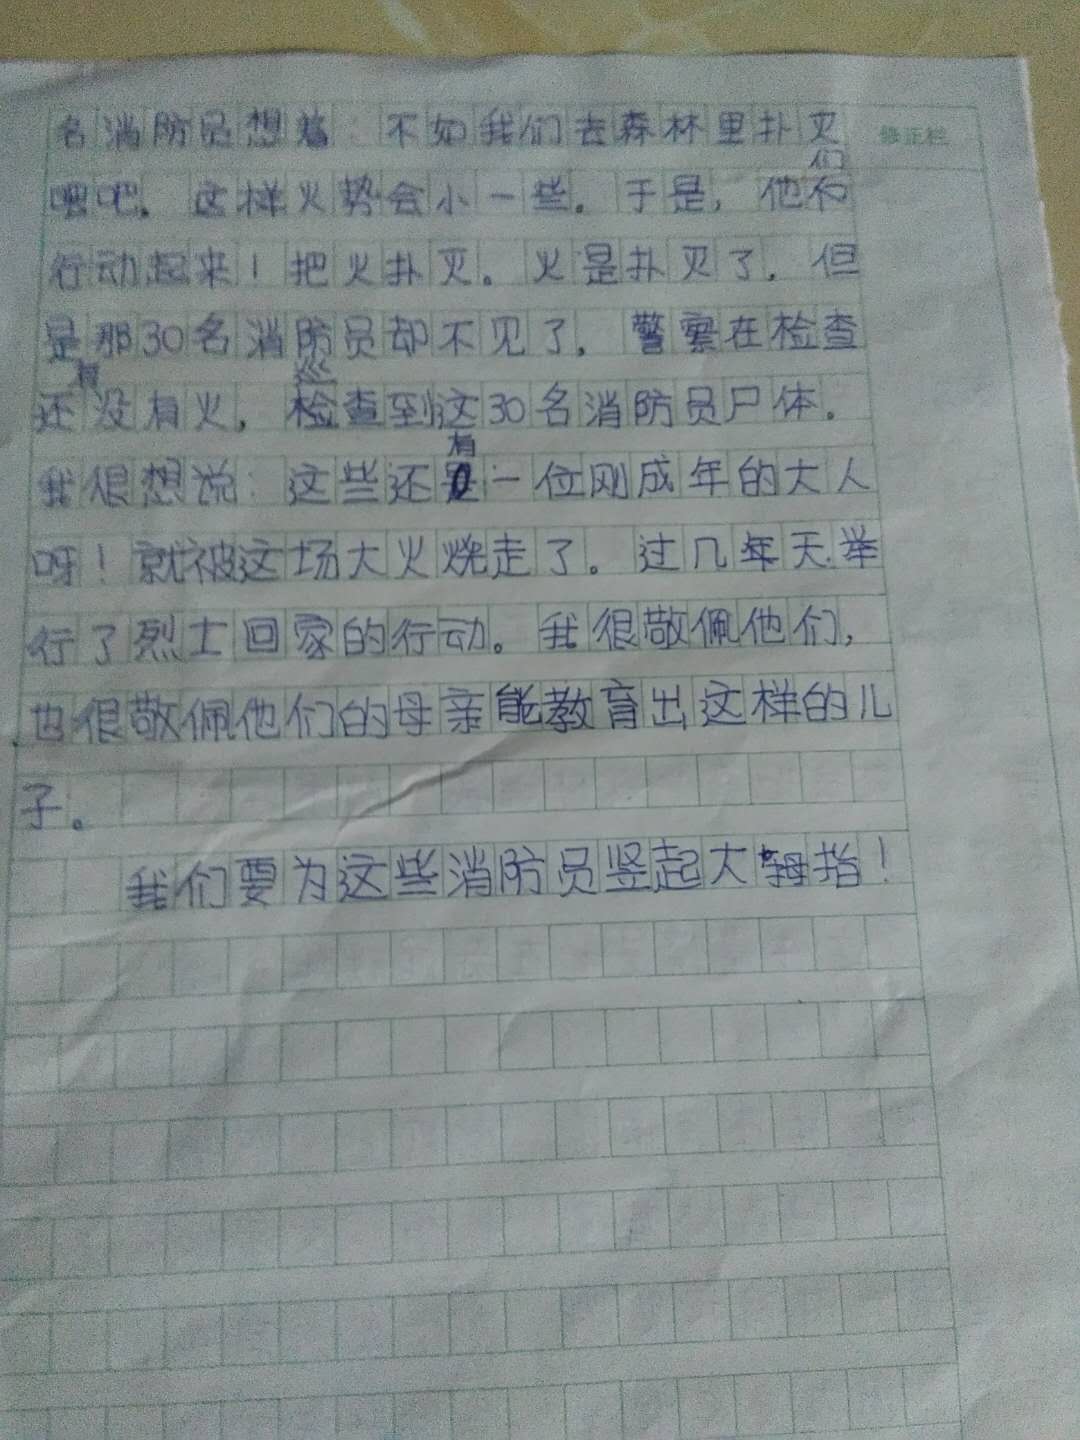 名消防员想着：不如我们去森林里扑灭 修正栏
吧。这样火势会小一些。于是，他们
行动起来！把火扑灭。火是扑灭了，但
是那30名消防员却不见了，警察在检查
还有没有火，检查到这30名消防员尸体。
我很想说：这些还有一位刚成年的大人
呀！就被这场大火烧走了。过几年天举
行了烈士回家的行动。我很敬佩他们，
也很敬佩他们的母亲能教育出这样的儿
子。
我们要为这些消防员竖起大拇指！